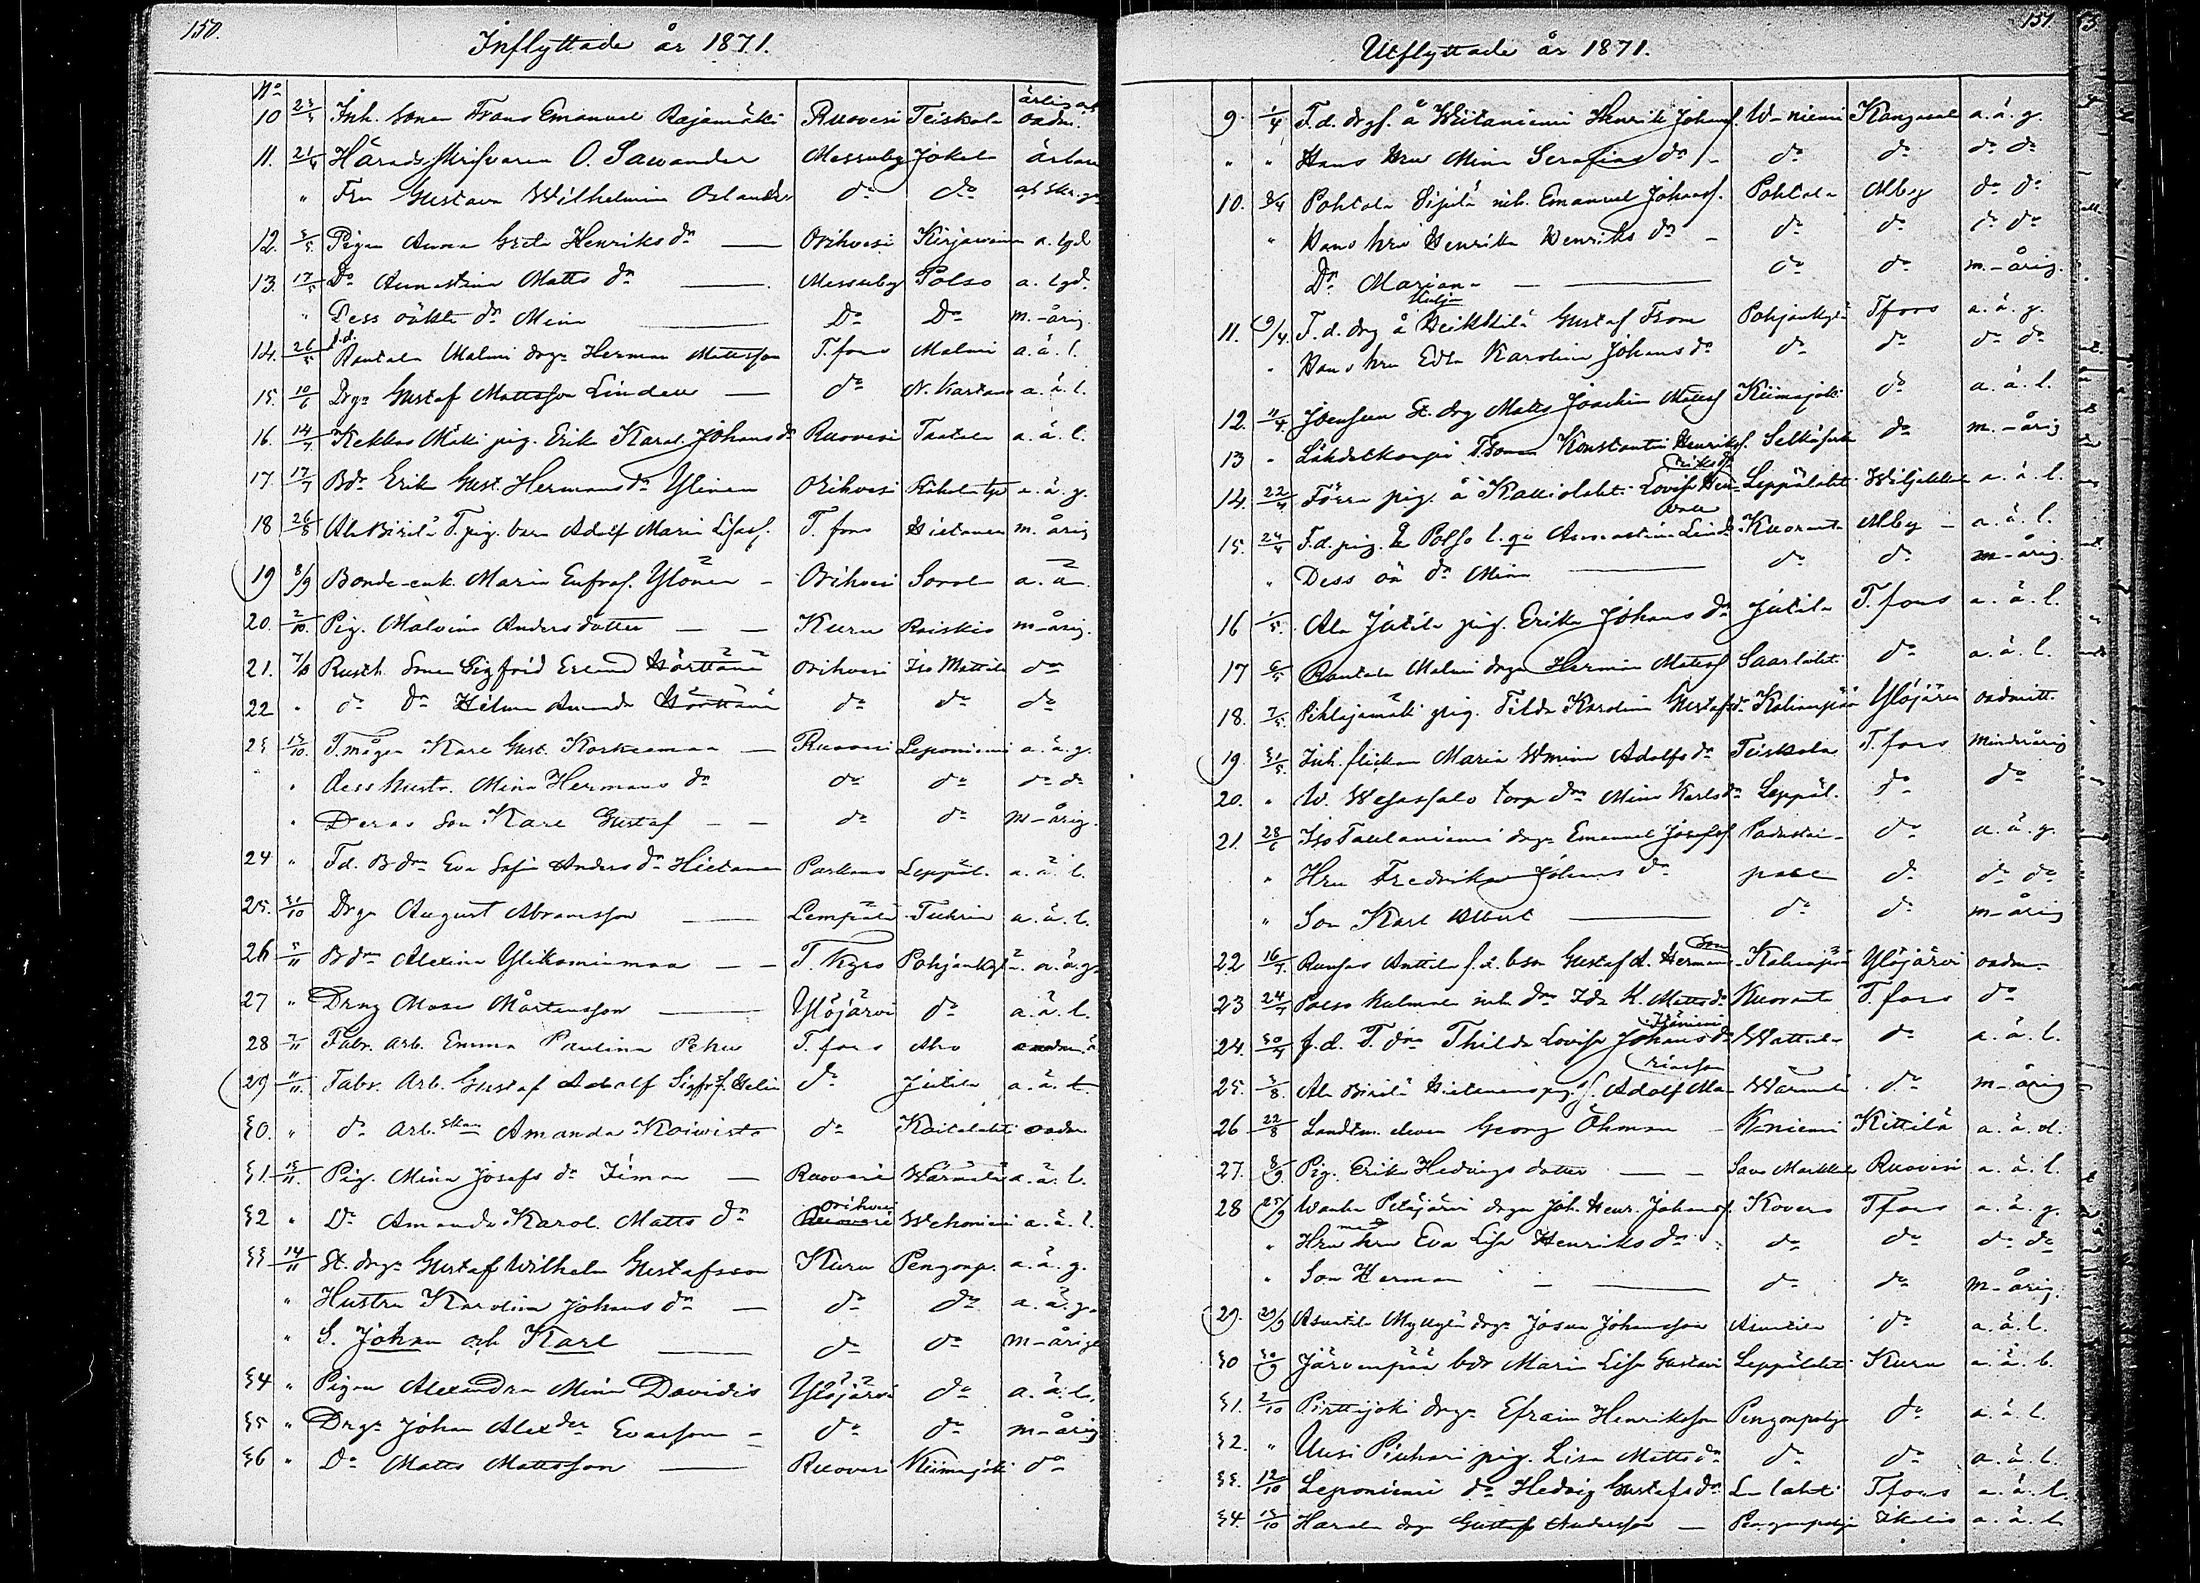 150.
Inflyttade år 1871.
No
10 Inh. sonen Frans Emanuel Rajamäki Ruovesi Teiskola ärlig och oadm.
11. 21/4 Häradsskrifvaren O. Sawander Messuby Jokela
" Fru Gustava Wilhelmina do do
12. Pigan Anna Greta Henriks dr Orihvesi a. lgd
13. 17/5 Do Annastina Matts dr Messuby Polso a. lgd.
" Dess oäkta dr Mina Do Do m.-årig
14. 26/5 f.d. Rantala Malmi drgn Herman Mattsson T.fors Malmi a. ä. l.
15. 10/6 Drgn Gustaf Mattsson Linden do N. Kartano a. ä. l.
16. 14/7 Kekkos Mäki pig. Erika Karol. Johans dr Ruovesi Taatala a. ä. l.
17. 17/7 Bdr Erika Gust. Hermans dr Ylinen Orihvesi a. ä. g.
18 26/8 Ala Birilä T. pig. barn Adolf Maria T. fors Hietanen m. årig
19 8/9 Bonde-enk. Maria Eufros. Ylönen Orihvesi Sorola a. ä.
20. 2/10. Pig. Malvina Anders dotter Kuru Raiskio m-årig.
21. 7/10 Rusth. Sonen Sigfrid Erland Hörttänä Orihvesi Iso Mattila do
22 " do Dr Hilma Amanda Hörttänä do do do
23 13/10. T.mågen Karl Gust. Korkeemaa Ruovesi Leponiemi a. ä. g.
" dess hustr. Mina Hermans dr do do do do
" Deras Son Karl Gustaf do do m-årig.
24 " Fd. Bdr Eva Sofia Anders dr Hietanen Parkano Leppäl. a. ä. l.
25. 31/10 Drgn August Abramsson Lempälä Tuhrin a. ä. l.
26 Bdr Alexina Ylikominmaa T. Kyro Pohjankyl a. ä. g.
27 " Drng Mose Mårtensson Ylöjärvi do a. ä. l.
28 7/11 Fabr. Arb. Emma Paulina Pehu T. fors Aho
29 11/11. Fabr. Arb. Gustaf Adolf Sigfrs. Helin do Jutila a. ä. l.
30. " do Arb.skan Amanda Koivisto do Koitalahti oadm
31. 13/11. Pig. Mina Josefs dr Iiman Ruovesi Wärmälä a. ä. l.
32 " Dr Amanda Karol. Matts dr Orihvesi Wehoniemi a. ä. l.
33 14/11 St. drgn Gustaf Wilhelm Gustafsson Kuru Pengonp. a. ä. g.
" Hustru Karolina Johans dr do do a. ä. g.
" S. Johan och Karl do do m-årige
34 " Pigan Alexandra Mina Davidis Ylöjärvi do a. ä. l.
35 " Drgn Johan Alexder Evasson do do m-årig
36 " Do Matts Mattsson Ruovesi Kiimajoki do
151.
Utflyttade år 1871.
9. 1/4 F.d. drgs. å Wiitaniemi Henrik Johans. W-niemi Kangasal a. ä. g.
" " Hans Hru Mina Serafina dr do do do do
10. 8/4 Pohtola Sipilä inh. Emanuel Johanss. Pohtola Mby do do
" Hans hru Henrika Henriks dr do do do do
Dr Mariana do do m.-årig.
11. 9/4. F.d. drg å Heikkilä Gustaf Fsson Pohjankylä Tfors a. ä. g.
" Hans hru Edla Karolina Johans dr do do do do
12. 11/4. Joensuu St. drg Matts Joachim Matss Kiimajoki do a. ä. l.
13 " Lähdetkorpi T.sonen Konstantin Henrikss. do m.-årig
14. 22/4 Förra pig. å Kalliolahti Lovisa Hen riksdr Leppälahti a. ä. l.
15. 24/4 F.d. pig. å Polso l. qv Annastina Kuoranta Mby a. ä. l.
" Dess oä dr Mina do do m-årig.
16 1/5. Ala Jutila pig. Erika Johans dr Jutila T. fors a. ä. l.
17 6/5 Rantala Malmi drgn Herman Matss Saarlahti do a. ä. l.
18. 7/5. Pihlajamäki pig. Tilda Karolina Gustafs dr Kaliänpää Ylöjärvi oadmitt.
19. 31/5. Inh. flickan Maria Wmina Adolfs dr Teiskola T. fors Minderårig
20. " W. Wesassalo torp drn Mina Karls dr Leppäl. do do
21. 28/6 Iso Taulaniemi drgn Emanuel Josefss. Padustai- do a. ä. g.
" Hru Fredrika Johans dr pale do do do
" Son Karl Albert do do m-årig
22 16/7 Runsas Anttila f.d. bson Gustaf A. Hermans son Kaliänpää Ylöjärvi oadm.
23 24/7 Paeso Kulmala inh. drn Ida K. Matts dr Kuoranta T. fors do
24. 30/7 f.d. T. drn Thilda Lovisa Johans dr Wattula do a. ä. l.
25. 3/8. Ala Birilä Hietanens pig. s. Adolf Ma- riasson Wärmälä do m-årig
26 22/8 Landtm. eleven Georg Öhman K-niemi Kittilä a. ä. ol.
27. 8/9 Pig. Erika Hedvigs dotter Savo Markkula Ruovesi a. ä. l.
28 25/9 Petäjäjärvi drgn Joh. Henr. Johanss. Kovero Tfors a. ä. g.
" Hru hru Eva Lisa Henriks dr do do do do
" Son Herman do do m-årig.
29. 29/9 Asuntila Myllylä drgn Josua Johansson Asuntila do a. ä. l.
30 30/9 Järvenpää bdr Maria Lisa Gustavi Leppälahti Kuru a. ä. l.
31. 2/10 Pirttijoki drgn Efraim Henriksson Pengonpohja do a. ä. l.
32. " Uusi Piukari pig. Lisa Matts dr do do a. ä. l.
33. 12/10 Leponiemi dr Hedvig Gustafs dr L-lahti Tfors a. ä. l.
34. 13/10 Harala drgn Gustaf Andersson Pengonpohja Eikelis a. ä. l.